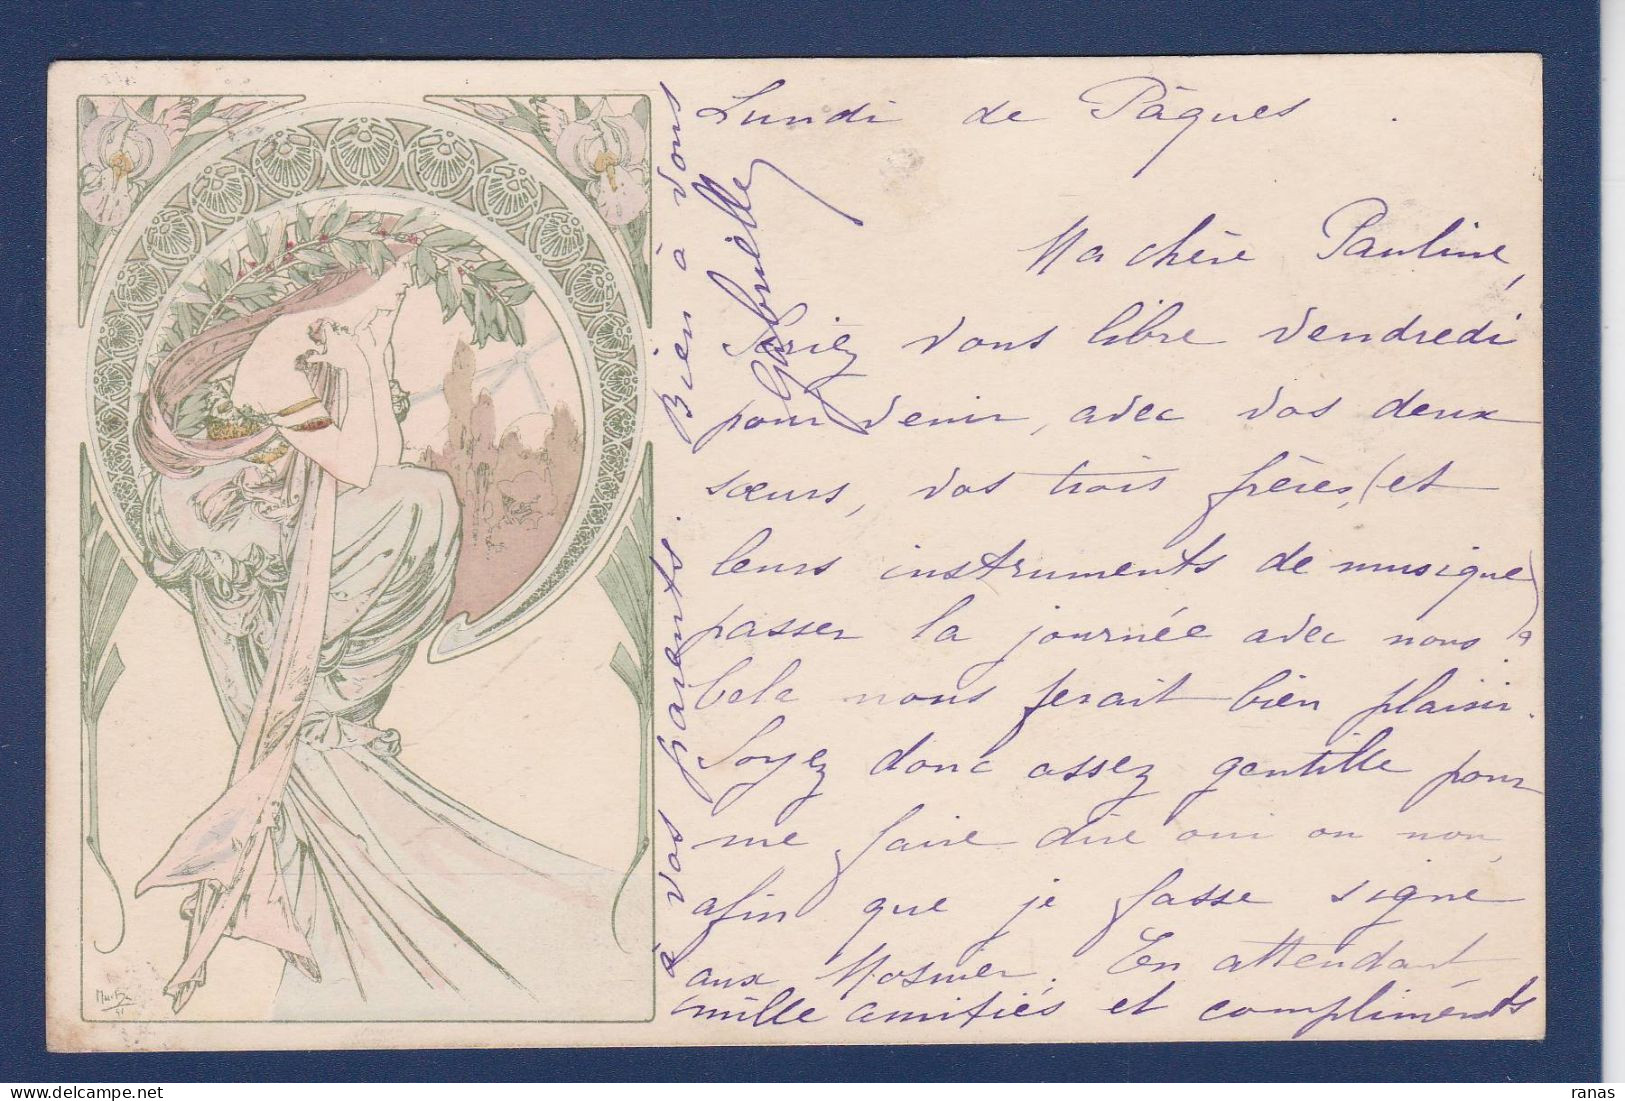 Lundi de Pâques.
Ma chère Pauline,
Seriez vous libre vendredi
pour venir, avec vos deux
sœurs, vos trois frères, (et
leurs instruments de musique)
passer la journée avec nous ?
Cela nous ferait bien plaisir.
Soyez donc assez gentille pour
me faire dire oui ou non,
afin que je fasse signe
aux Mosmer. En attendant
mille amitiés et compliments
à vos parents. Bien à vous
Gabrielle
Mucha
ranas